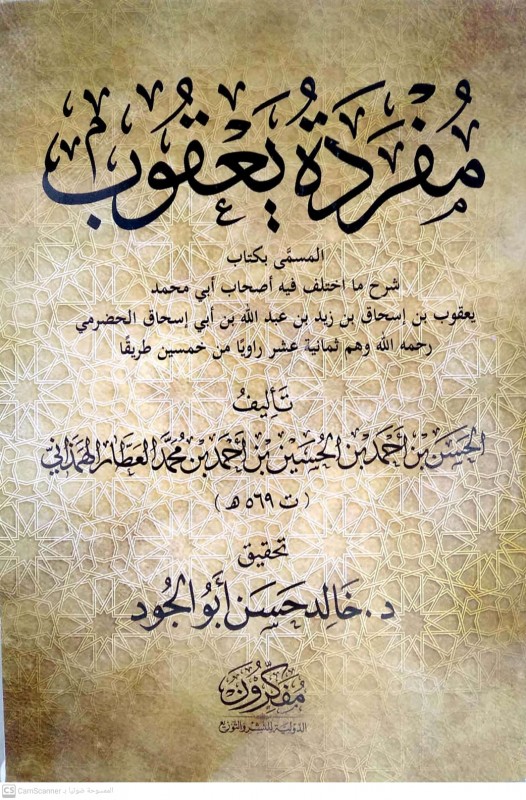 مُفْرَدَةُ يَعْقُوبَ
المسمَّى بكتاب
شرح ما اختلف فيه أصحاب أبي محمد
يعقوب بن إسحاق بن زيد بن عبد الله بن أبي إسحاق الحضرمي
رحمه الله وهم ثمانية عشر راويًا من خمسين طريقًا
تَأليفُ
الحَسَن بْن أَحْمَد بْن الحُسَيْن بْن أَحْمَد بْن مُحَمَّد العَطَّار الهَمَذَاني
( ت ٥٦٩ هـ )
تحقيق
د. خَالِد حَسَن أَبُو الجُود
مُفَكِّرُون
الدولية للنشر والتوزيع
CS CamScanner الممسوحة ضوئيا بـ